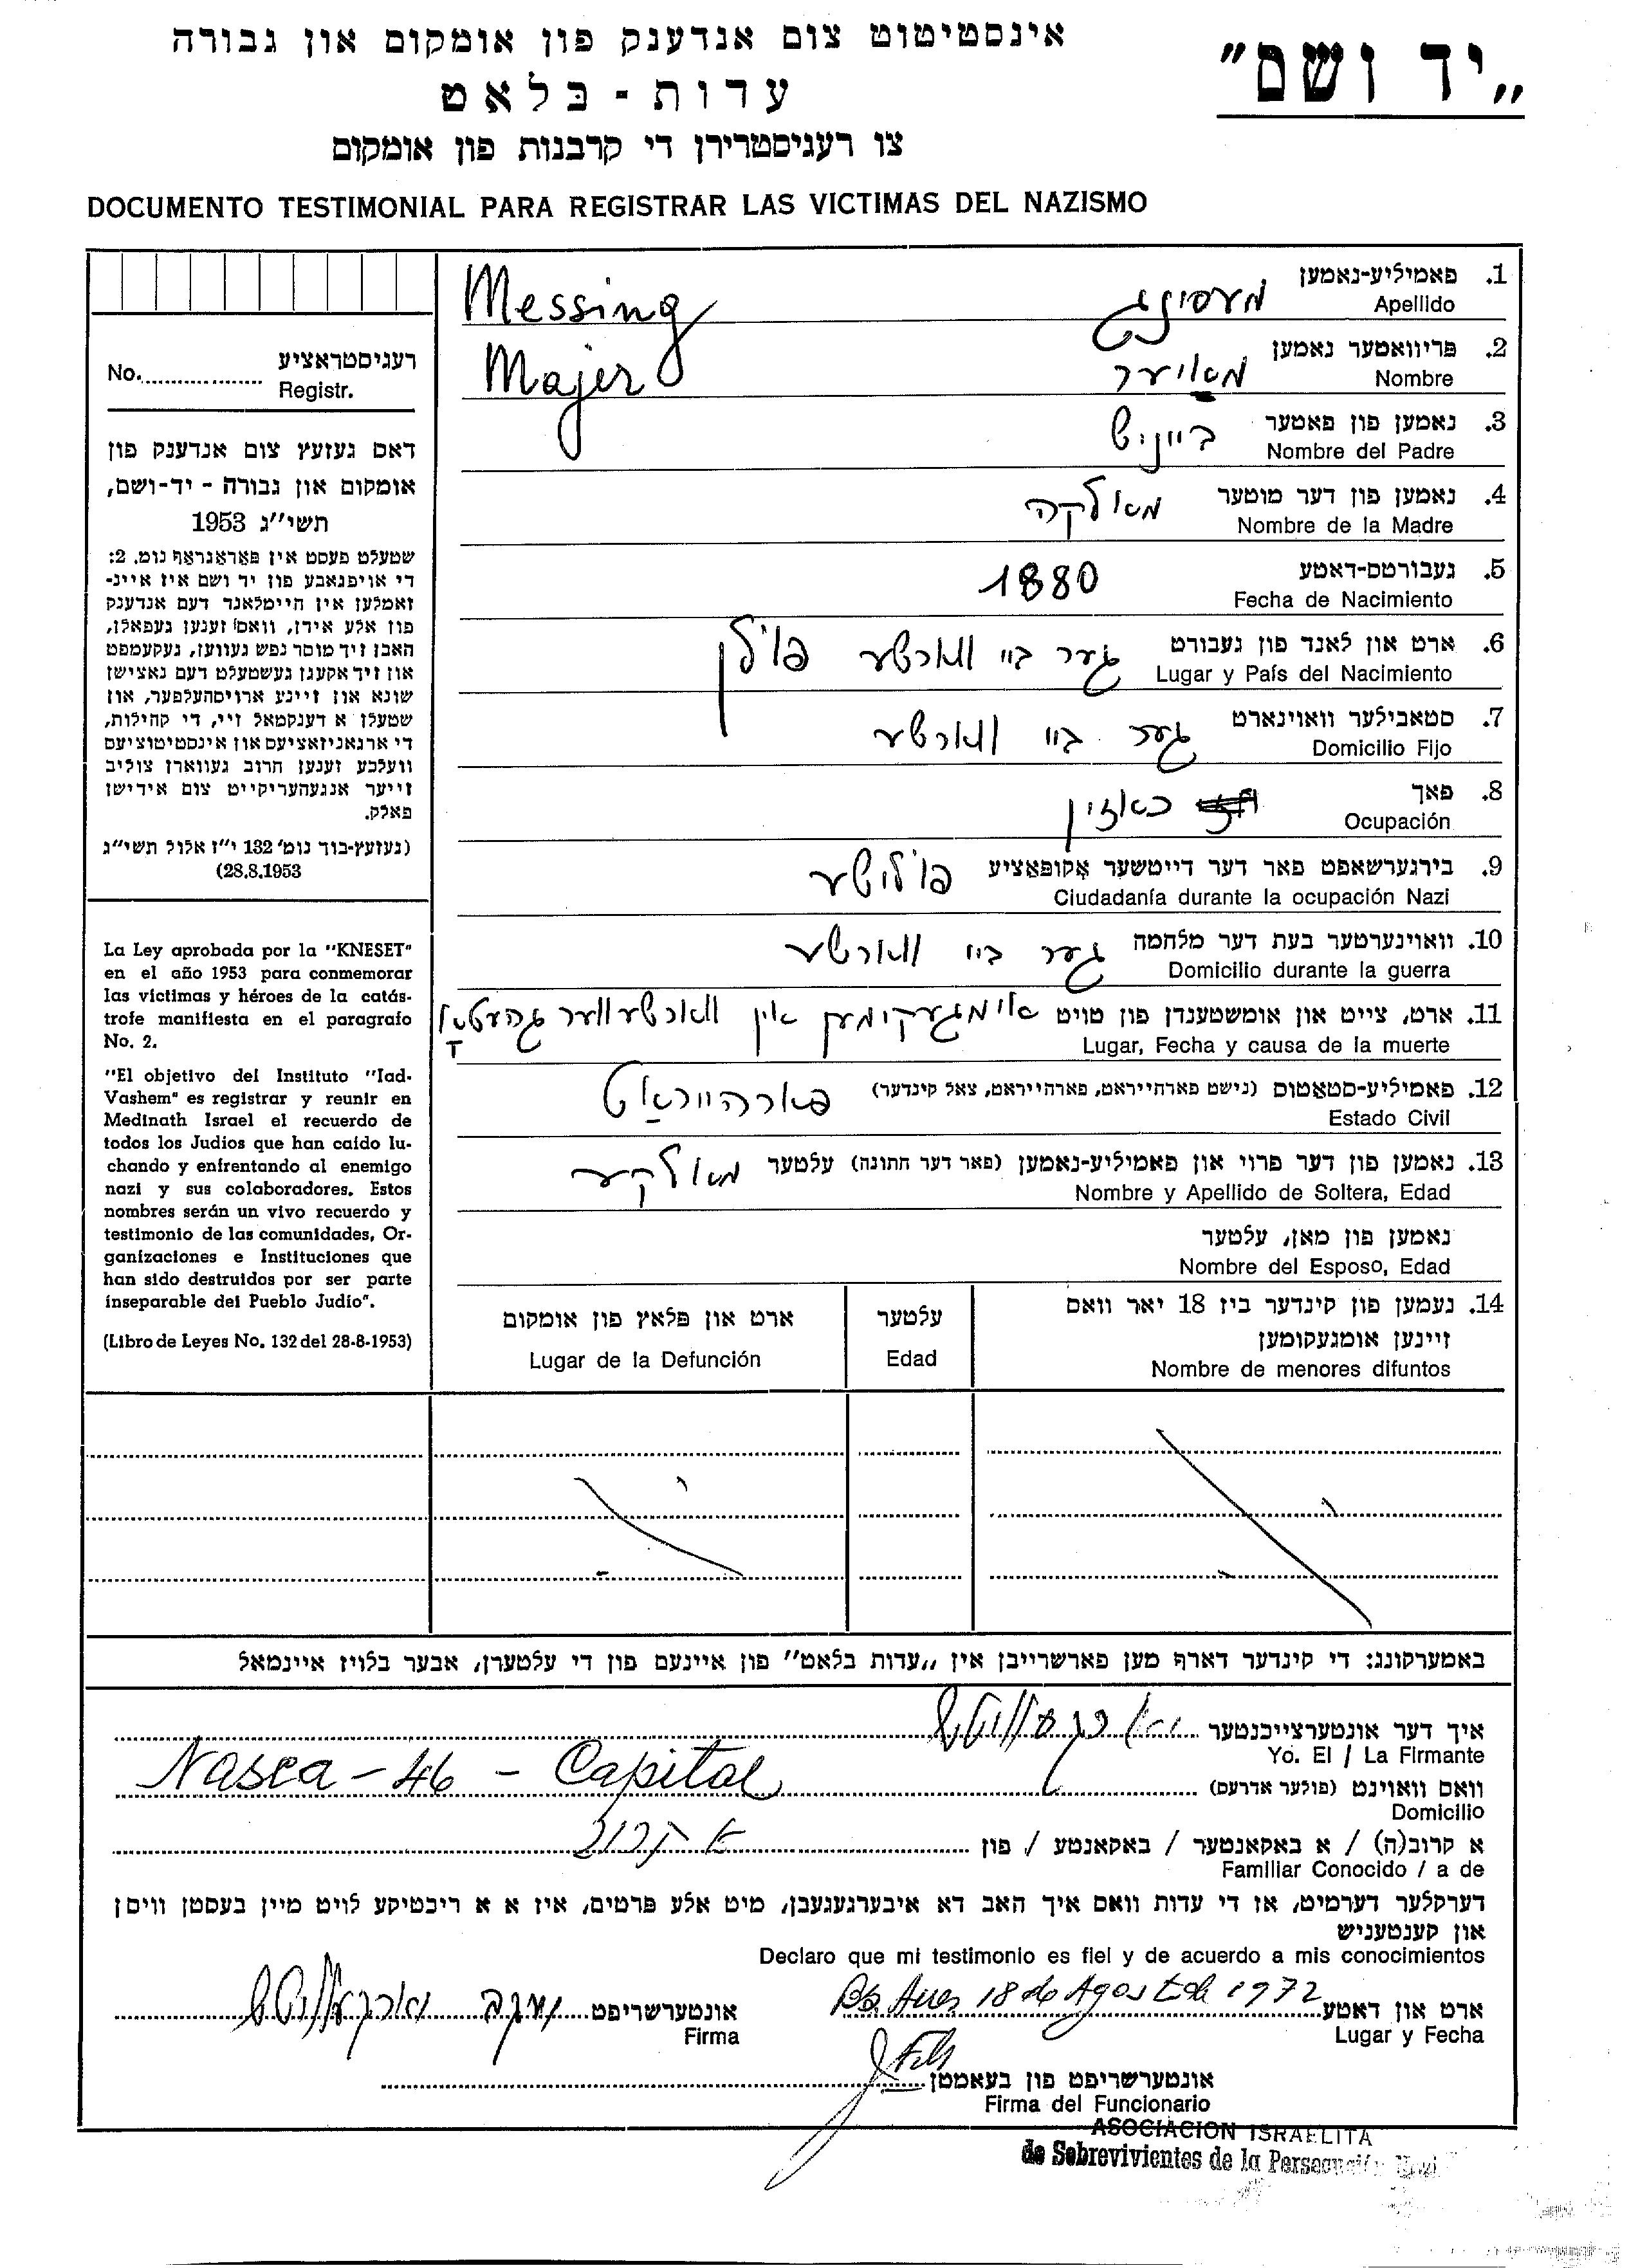 „יד ושם"
אינסטיטוט צום אנדענק פון אומקום און גבורה
עדות - בלאט
צו רעגיסטרירן די קרבנות פון אומקום
DOCUMENTO TESTIMONIAL PARA REGISTRAR LAS VICTIMAS DEL NAZISMO
רעגיסטראציע
No. Registr.
דאס געזעץ צום אנדענק פון
אומקום און גבורה - יד-ושם,
תשי"ג 1953
שטעלט פעסט אין פאראגראף נומ. 2:
די אויפגאבע פון יד ושם איז איינ-
זאמלען אין היימלאנד דעם אנדענק
פון אלע אידן, וואס זענען געפאלן,
האבן זיך מוסר נפש געווען, געקעמפט
און זיך אקעגן געשטעלט דעם נאצישן
שונא און זיינע ארויסהעלפער, און
שטעלן א דענקמאל זיי, די קהילות,
די ארגאניזאציעס און אינסטיטוציעס
וועלכע זענען חרוב געווארן צוליב
זייער אנגעהעריקייט צום אידישן
פאלק.
(געזעץ-בוך נומ' 132 י"ז אלול תשי"ג
(28.8.1953
La Ley aprobada por la "KNESET"
en el año 1953 para conmemorar
las víctimas y héroes de la catás-
trofe manifiesta en el paragrafo
No. 2.
"El objetivo del Instituto "Iad-
Vashem" es registrar y reunir en
Medinath Israel el recuerdo de
todos los Judíos que han caído lu-
chando y enfrentando al enemigo
nazi y sus colaboradores. Estos
nombres serán un vivo recuerdo y
testimonio de las comunidades, Or-
ganizaciones e Instituciones que
han sido destruídos por ser parte
inseparable del Pueblo Judío".
(Libro de Leyes No. 132 del 28-8-1953)
1. פאמיליע-נאמען מעסינג Messing
Apellido
2. פריוואטער נאמען מאיער Majer
Nombre
3. נאמען פון פאטער ביינוש
Nombre del Padre
4. נאמען פון דער מוטער מאלקה
Nombre de la Madre
5. געבורטס-דאטע 1880
Fecha de Nacimiento
6. ארט און לאנד פון געבורט גער ביי ווארשע פולן
Lugar y País del Nacimiento
7. סטאבילער וואוינארט גער ביי ווארשע
Domicilio Fijo
8. פאך כאזין
Ocupación
9. בירגערשאפט פאר דער דייטשער אקופאציע פוליש​ע
Ciudadanía durante la ocupación Nazi
10. וואוינערטער בעת דער מלחמה גער ביי ווארשע
Domicilio durante la guerra
11. ארט, צייט און אומשטענדן פון טויט אימגעקימען אין ווארשעווער געהעטא
Lugar, Fecha y causa de la muerte
12. פאמיליע-סטאטוס (נישט פארהייראט, פארהייראט, צאל קינדער) פארהייראט
Estado Civil
13. נאמען פון דער פרוי און פאמיליע-נאמען (פאר דער חתונה) עלטער מאלקע
Nombre y Apellido de Soltera, Edad
נאמען פון מאן, עלטער
Nombre del Esposo, Edad
14. נעמען פון קינדער ביז 18 יאר וואס
זיינען אומגעקומען
Nombre de menores difuntos
עלטער
Edad
ארט און פלאץ פון אומקום
Lugar de la Defunción
באמערקונג: די קינדער דארף מען פארשרייבן אין „עדות בלאט" פון איינעם פון די עלטערן, אבער בלויז איינמאל
איך דער אונטערצייכנטער
Yo. El / La Firmante
וואס וואוינט (פולער אדרעס) Nasca - 46 - Capital
Domicilio
א קרוב(ה) / א באקאנטער / באקאנטע / פון א קרוב
Familiar Conocido / a de
דערקלער דערמיט, אז די עדות וואס איך האב דא איבערגעגעבן, מיט אלע פרטים, איז א א ריכטיקע לויט מיין בעסטן וויסן
און קענטעניש
Declaro que mi testimonio es fiel y de acuerdo a mis conocimientos
ארט און דאטע Bs Aires 18 de Agosto de 1972 אונטערשריפט
Lugar y Fecha Firma
אונטערשריפט פון בעאמטן
Firma del Funcionario
ASOCIACION ISRAELITA
de Sobrevivientes de la Persecución Nazi